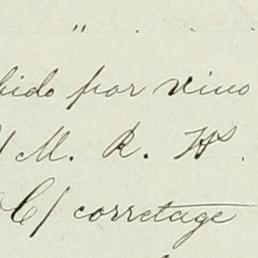 "
bido por vino
/ M. R. Hs.
C/ corretage